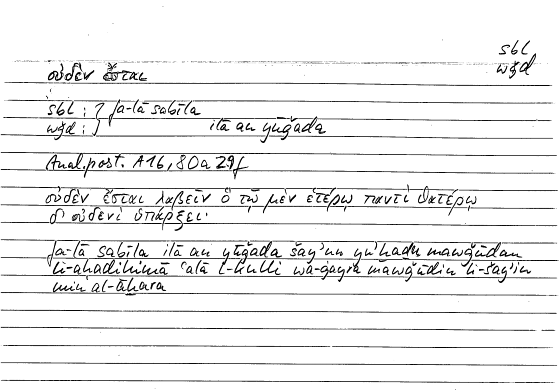 sbl
wǧd
οὐδὲν ἔσται
sbl : } fa-lā sabīla
wǧd : } ilā an yūǧada
Anal. post. A 16, 80a 29f
οὐδὲν ἔσται λαβεῖν ὃ τῷ μὲν ἑτέρῳ παντὶ θατέρῳ
δ' οὐδενὶ ὑπάρξει·
fa-lā sabīla ilā an yūǧada šayʾun yuʾḫaḏu mawǧūdan
li-aḥadihimā ʿalā l-kulli wa-ġayra mawǧūdin li-šayʾin
min al-āḫara